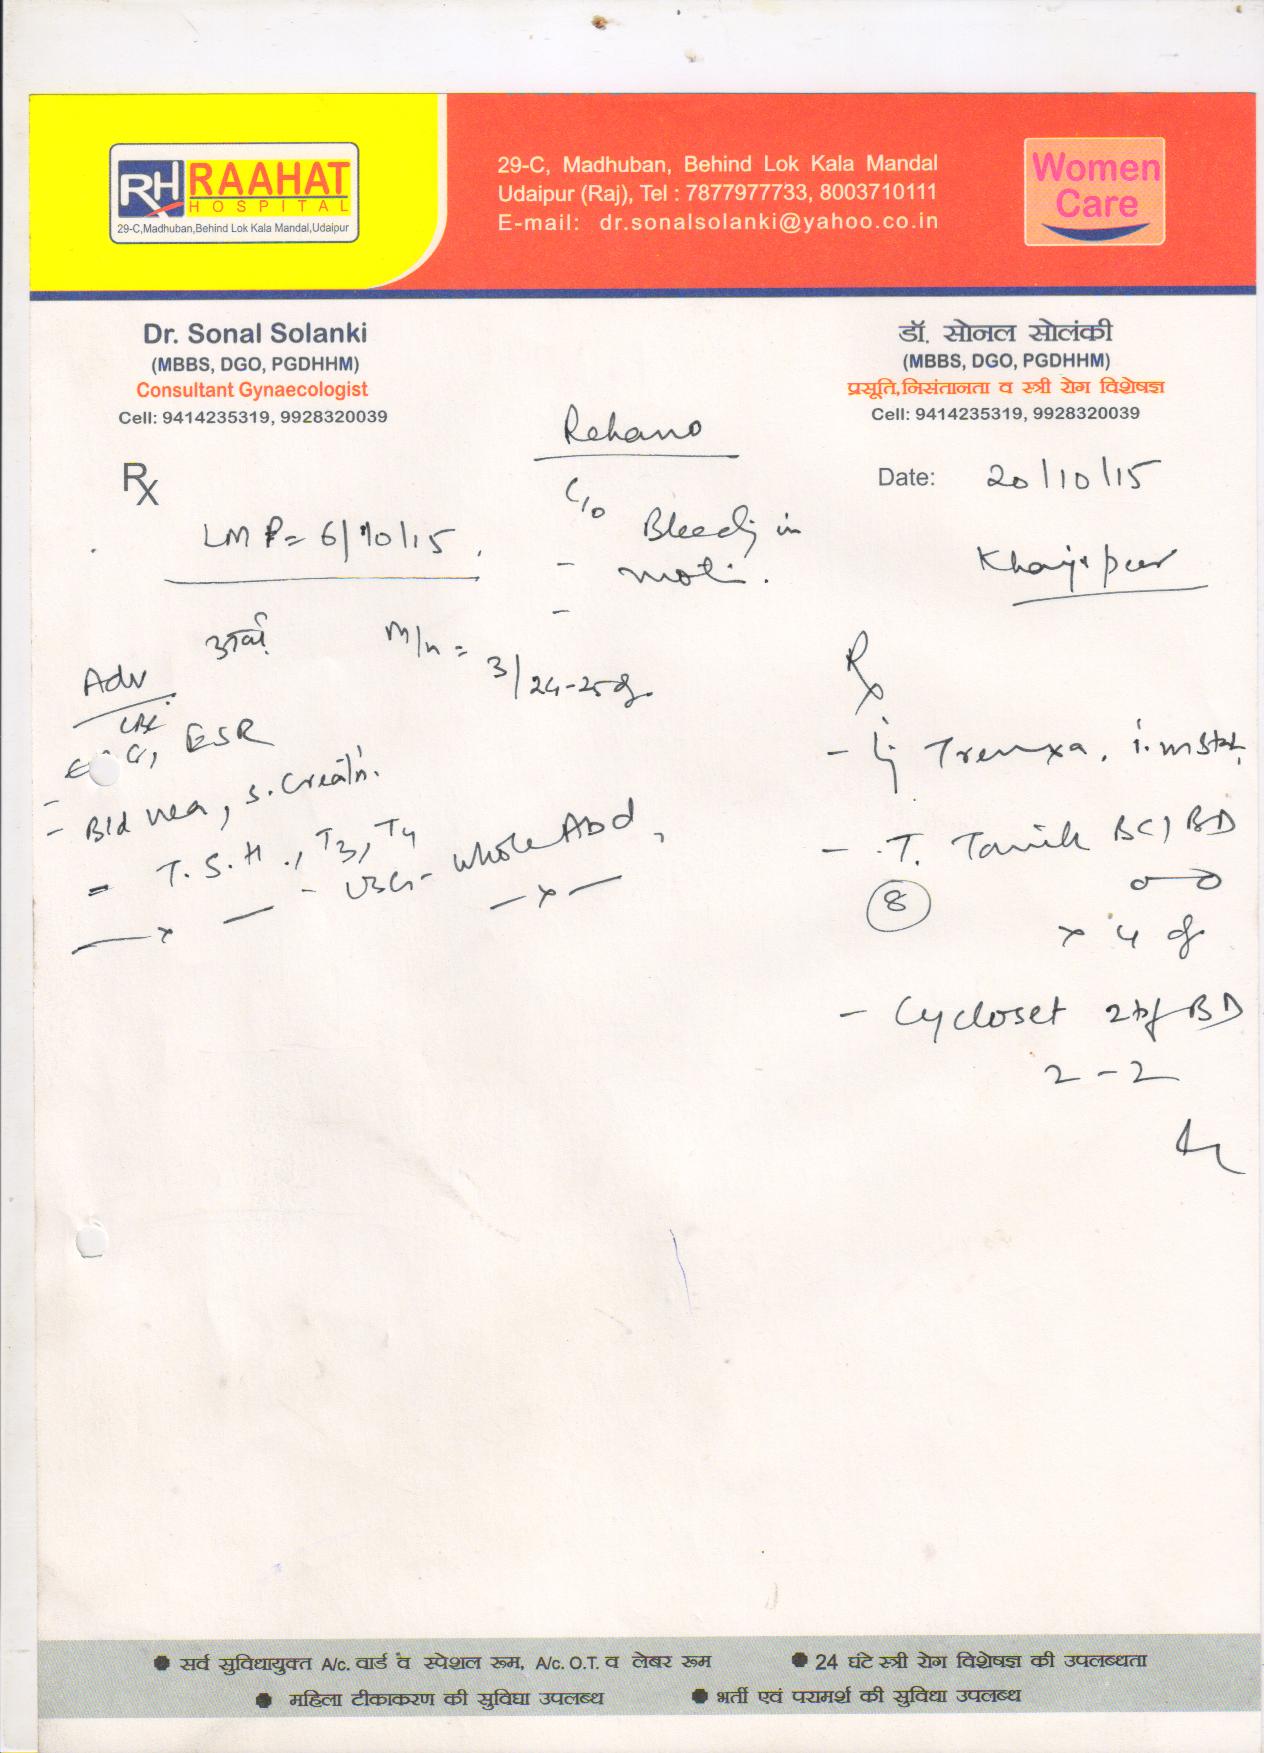 RH RAAHAT
HOSPITAL
29-C,Madhuban,Behind Lok Kala Mandal,Udaipur
29-C, Madhuban, Behind Lok Kala Mandal
Udaipur (Raj), Tel : 7877977733, 8003710111
E-mail: dr.sonalsolanki@yahoo.co.in
Women
Care
Dr. Sonal Solanki
(MBBS, DGO, PGDHHM)
Consultant Gynaecologist
Cell: 9414235319, 9928320039
डॉ. सोनल सोलंकी
(MBBS, DGO, PGDHHM)
प्रसूति,निसंतानता व स्त्री रोग विशेषज्ञ
Cell: 9414235319, 9928320039
Rehano
Rx
Date: 20/10/15
LMP = 6/10/15
C/o
Bleedj in
- moti.
-
M/h =
3/24-25 d
Adv
ESR
- Bld urea, s. Creatn.
= T.S.H., T3, T4
- USG - whole Abd,
— x —
— x —
Rx
- Trenxa, i.m stat
- T. BD
8
x 4 d
- Cycloset 2 tf BD
2 - 2
● सर्व सुविधायुक्त A/c. वार्ड व स्पेशल रूम, A/c. O.T. व लेबर रूम
● 24 घंटे स्त्री रोग विशेषज्ञ की उपलब्धता
● महिला टीकाकरण की सुविधा उपलब्ध
● भर्ती एवं परामर्श की सुविधा उपलब्ध